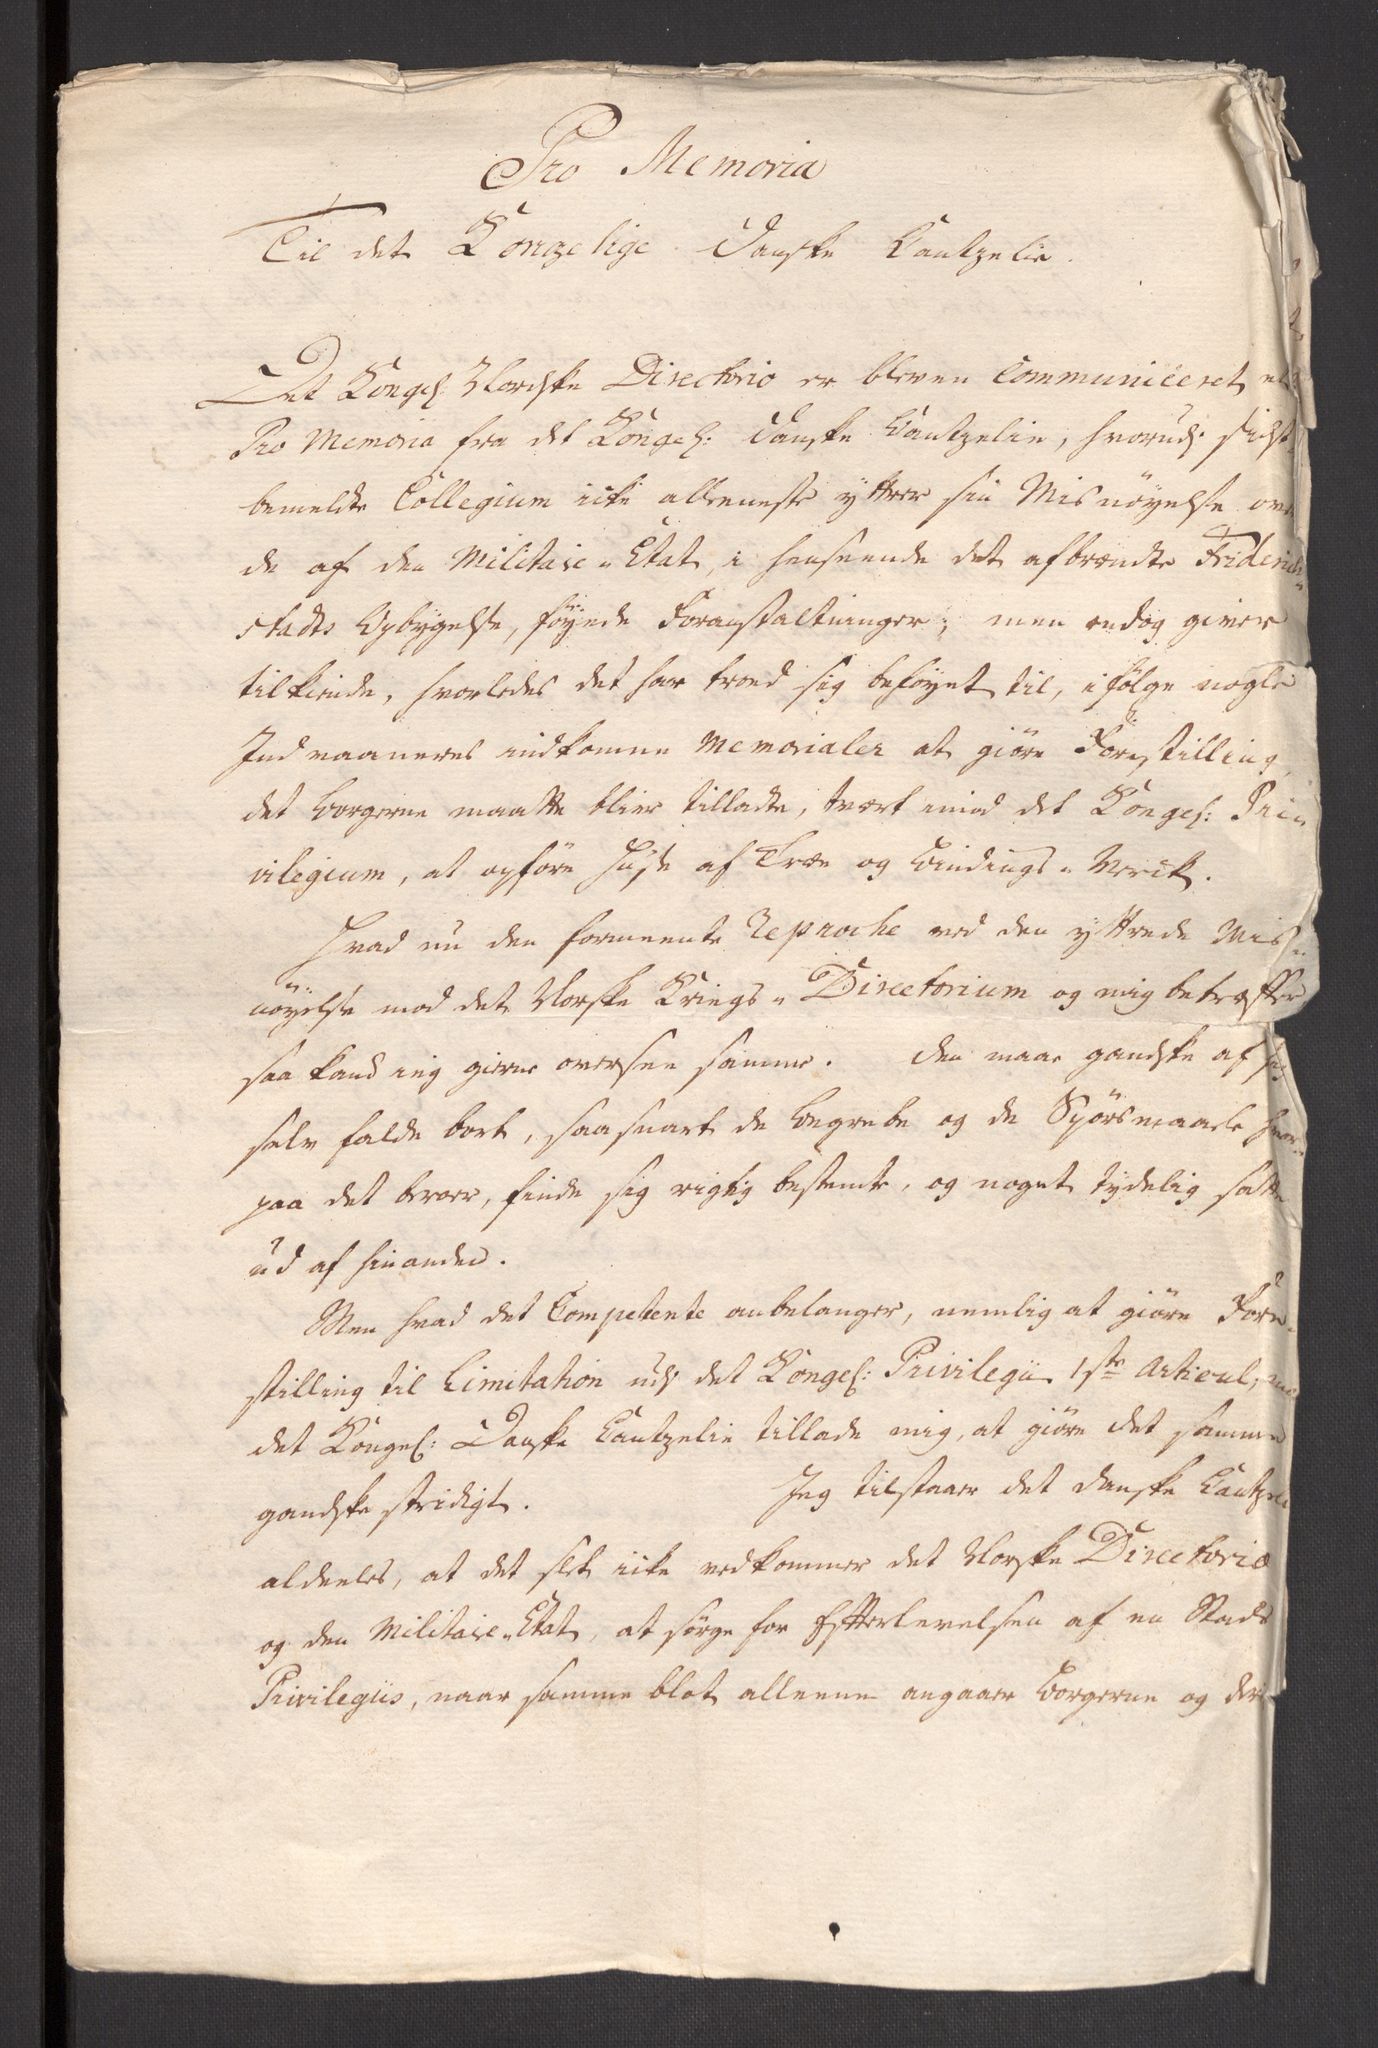 Pro Memoria
Til det Kongelige Danske Cantzelie.
Det Kongel: Norske Directorio er bleven Communiceret et
Pro Memoria fra det Kongel: Danske Cantzelie, hvorudj sidst
bemeldte Collegium icke alleeneste yttrer sin Misnöyelse over
de af den Militaire Etat, i henseende det afbrændte Friderich
stads Opbygelse, föyede Foranstaltninger; men endog giver
tilkiende, hvorledes det har troed sig beföyet til, i fölge nogle
Indvaaneres indkomne Memorialer at giöre Forestilling,
det Borgerne maatte blive tilladte, tvært imod det Kongel: Pri
vilegium, at opföre Huse af Træe og Bindings-Verck.
Hvad nu den formeente Reproche ved den yttrede Mis-
nöyelse mod det Norske Kriegs-Directorium og mig betræffer
saa kand jeg gierne oversee samme. Den maae gandske af sig
selv falde bort, saasnart de Begrebe og de Spörsmaale hvor-
paa det beroer, finde sig rigtig bestemte, og noget tydelig satte
ud af hinanden.
Men hvad det Competente anbelanger, nemlig at giöre Fore-
stilling til Limitation udj det Kongel: Privilegii 1ste Articul,
det Kongel: Danske Cantzelie tillade mig, at giöre det samme
gandske stridigt. Jeg tilstaaer det Danske Cantzelie
aldeeles, at det slet icke vedkommer det Norske Directorio
og den Militaire-Etat, at sörge for Efterlevelsen af en Stads
Privilegiis, naar samme blot alleene angaaer Borgerne og der